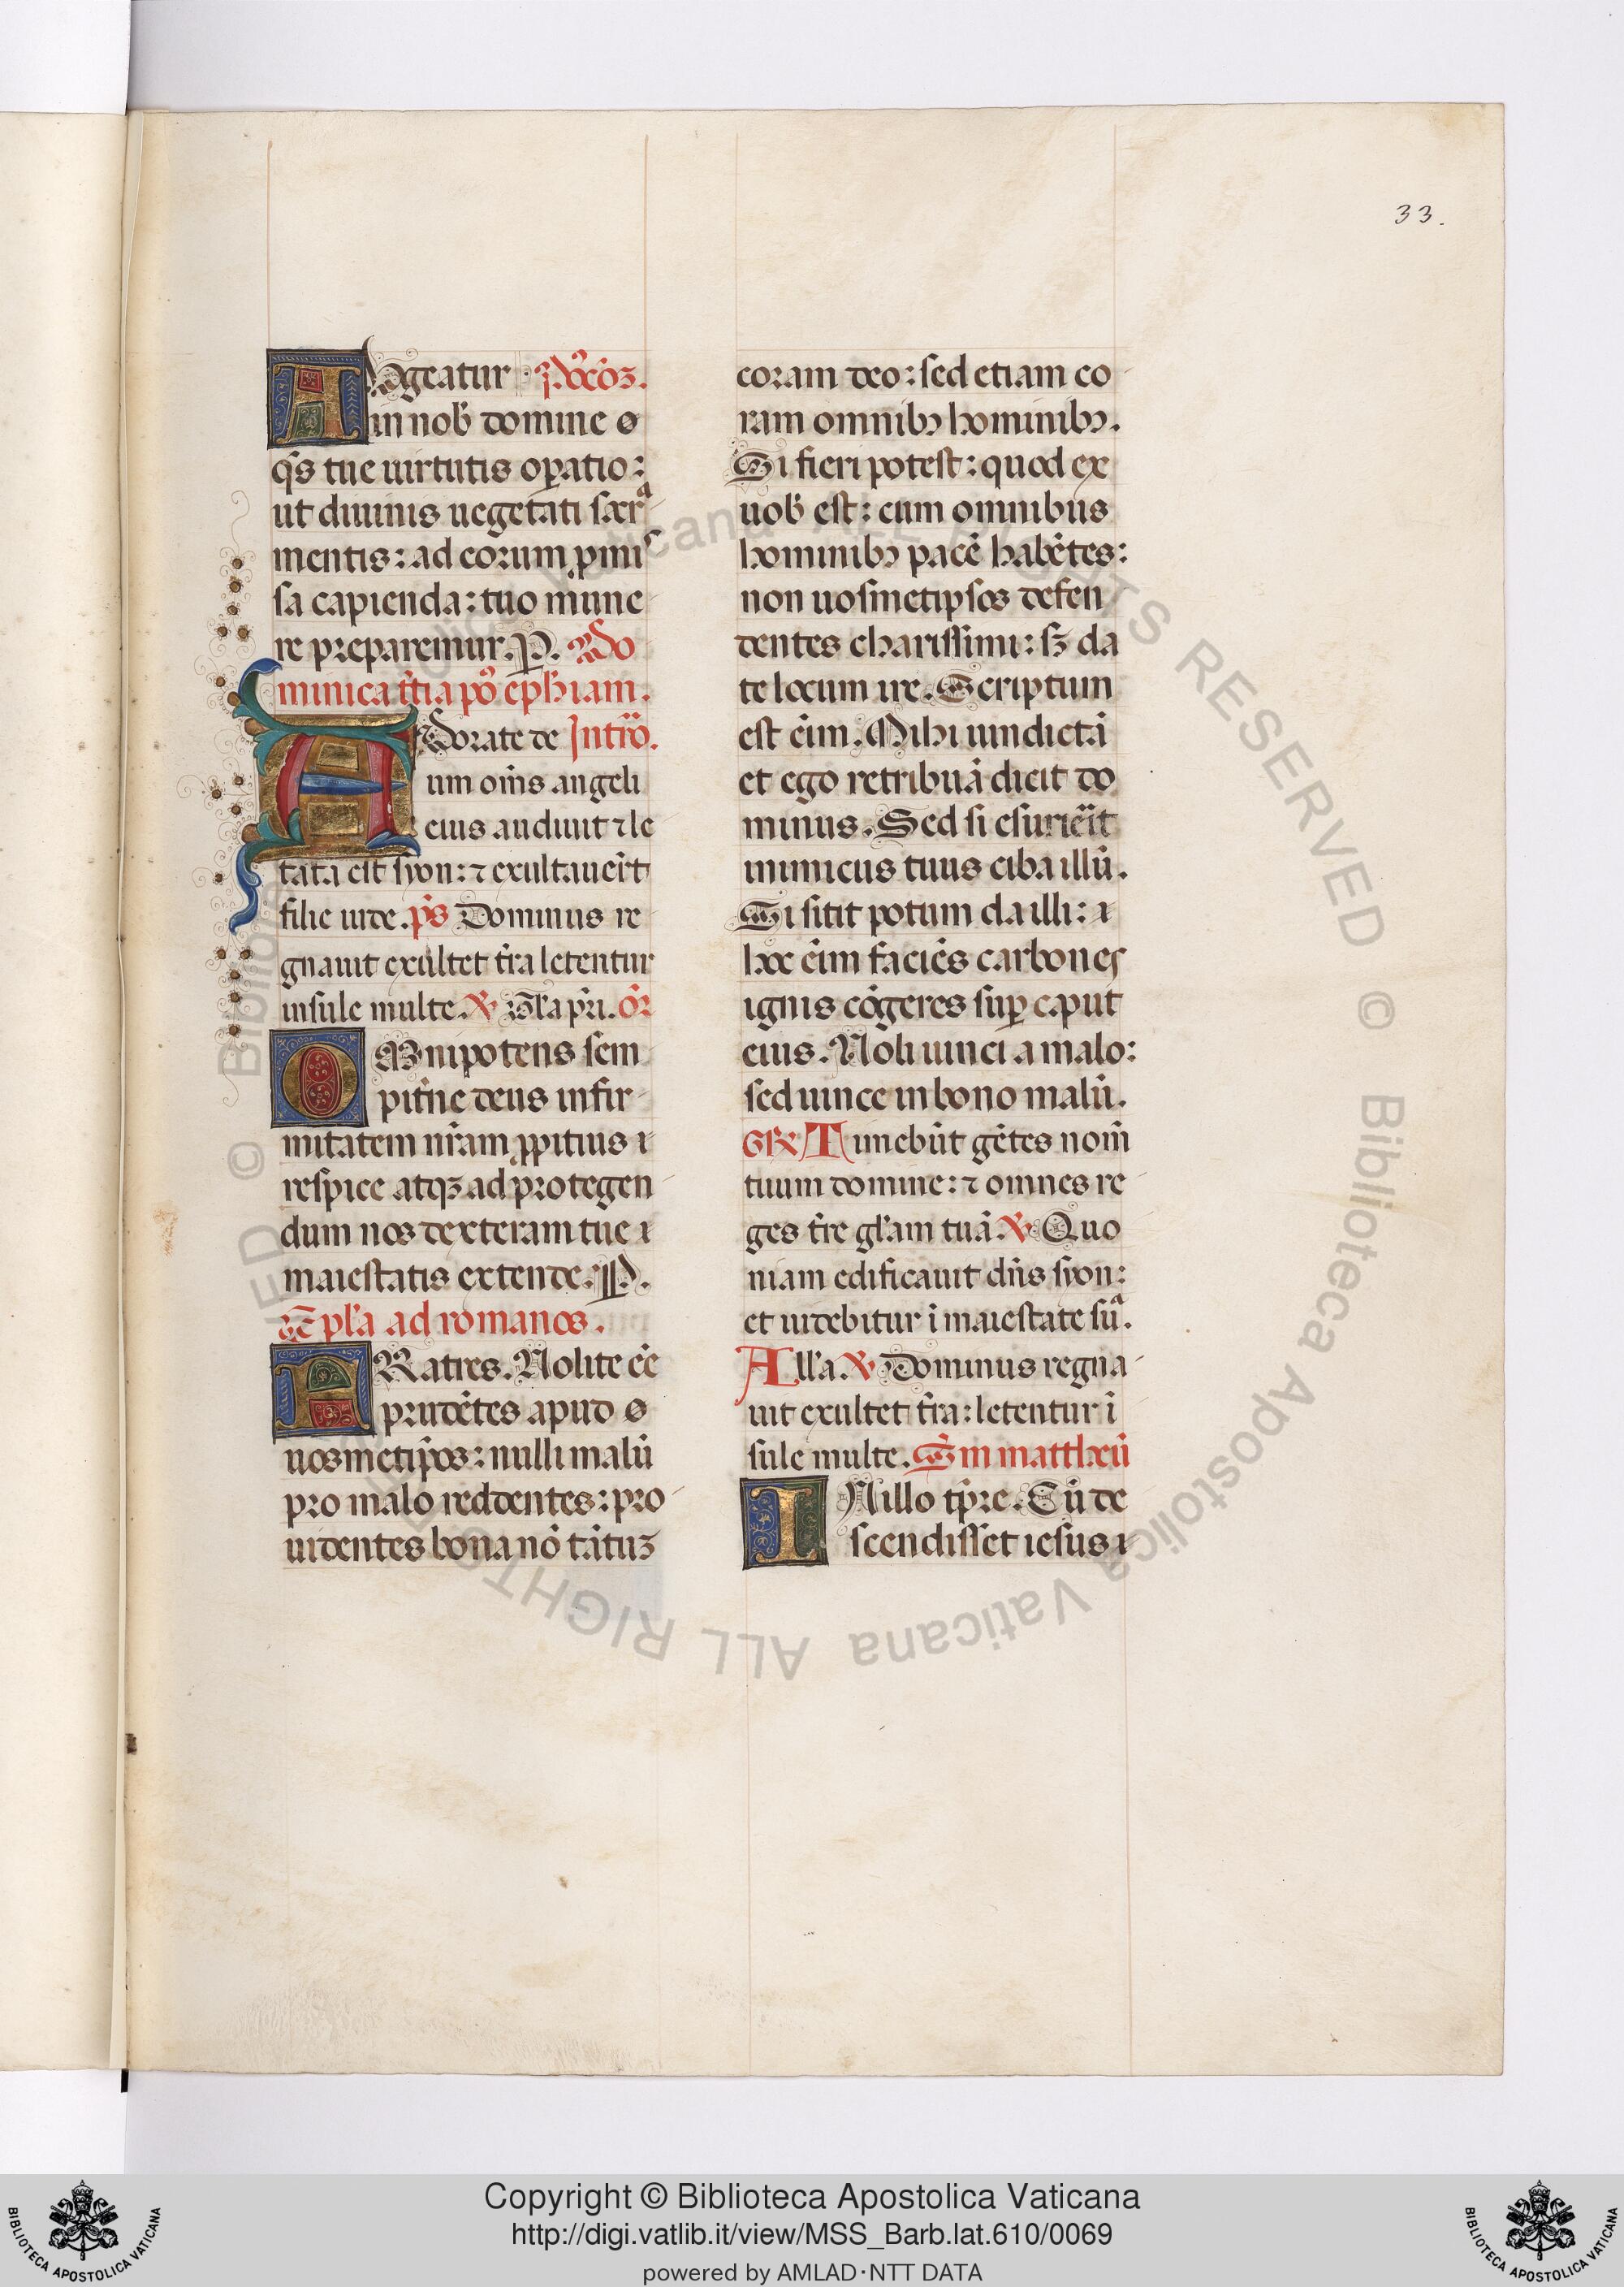 33.
AUgeatur Pꝰcōꝫ.
in nob̄ domine
q̄s tue uirtutis oꝑatio:
ut diuinis uegetati sacrᵃ
mentis: ad eorum ꝓmiſ
sa capienda: tuo mune
re preparemur. P. Do
minica t̄tia pꝰ eph̄iam.
ADorate de Introͥ.
um om̄s angeli
eius audiuit ⁊ le
tata est syon: ⁊ exultauer̄t
filie iude. p̄s Dominus re
gnauit exultet t̄ra letentur
insule multe. ℣ Gl̄a p̄ri. or̄
OMnipotens sem
pit̄ne deus infir
mitatem nr̄am ꝓpitius
respice atqꝫ ad protegen
dum nos dexteram tue
maiestatis extende. P.
Ep̄la ad romanos.
FRatres. Nolite eē
prudētes apud
uosmetip̄os: nulli malū
pro malo reddentes: pro
uidentes bona nō tātuꝫ
coram deo: sed etiam co
ram omnibꝰ hominibꝰ.
Si fieri potest: quod ex
uob̄ est: cum omnibus
hominibꝰ pacē habētes:
non uosmetipsos defen
dentes charissimi: sꝫ da
te locum ire. Scriptum
est eīm. Mihi uindictā
et ego retribuā dicit do
minus. Sed si esurieīt
inimicus tuus ciba illū.
Si sitit potum da illi:
hoc eīm faciēs carbones
ignis cōgeres suꝑ caput
eius. Noli uinci a malo:
sed uince in bono malū.
Gr̄e Timebūt gētes nom̄
tuum domine: ⁊ omnes re
ges t̄re gl̄am tuā. ℣ Quo
niam edificauit dn̄s syon:
et uidebitur ī maiestate suᵃ.
All̄a. ℣ Dominus regna
uit exultet t̄ra: letentur ī
sule multe. S̄m mattheū
IN illo tp̄re. Cū de
scendisset iesus
Copyright © Biblioteca Apostolica Vaticana
http://digi.vatlib.it/view/MSS_Barb.lat.610/0069
powered by AMLAD·NTT DATA
BIBLIOTECA APOSTOLICA VATICANA
BIBLIOTECA APOSTOLICA VATICANA